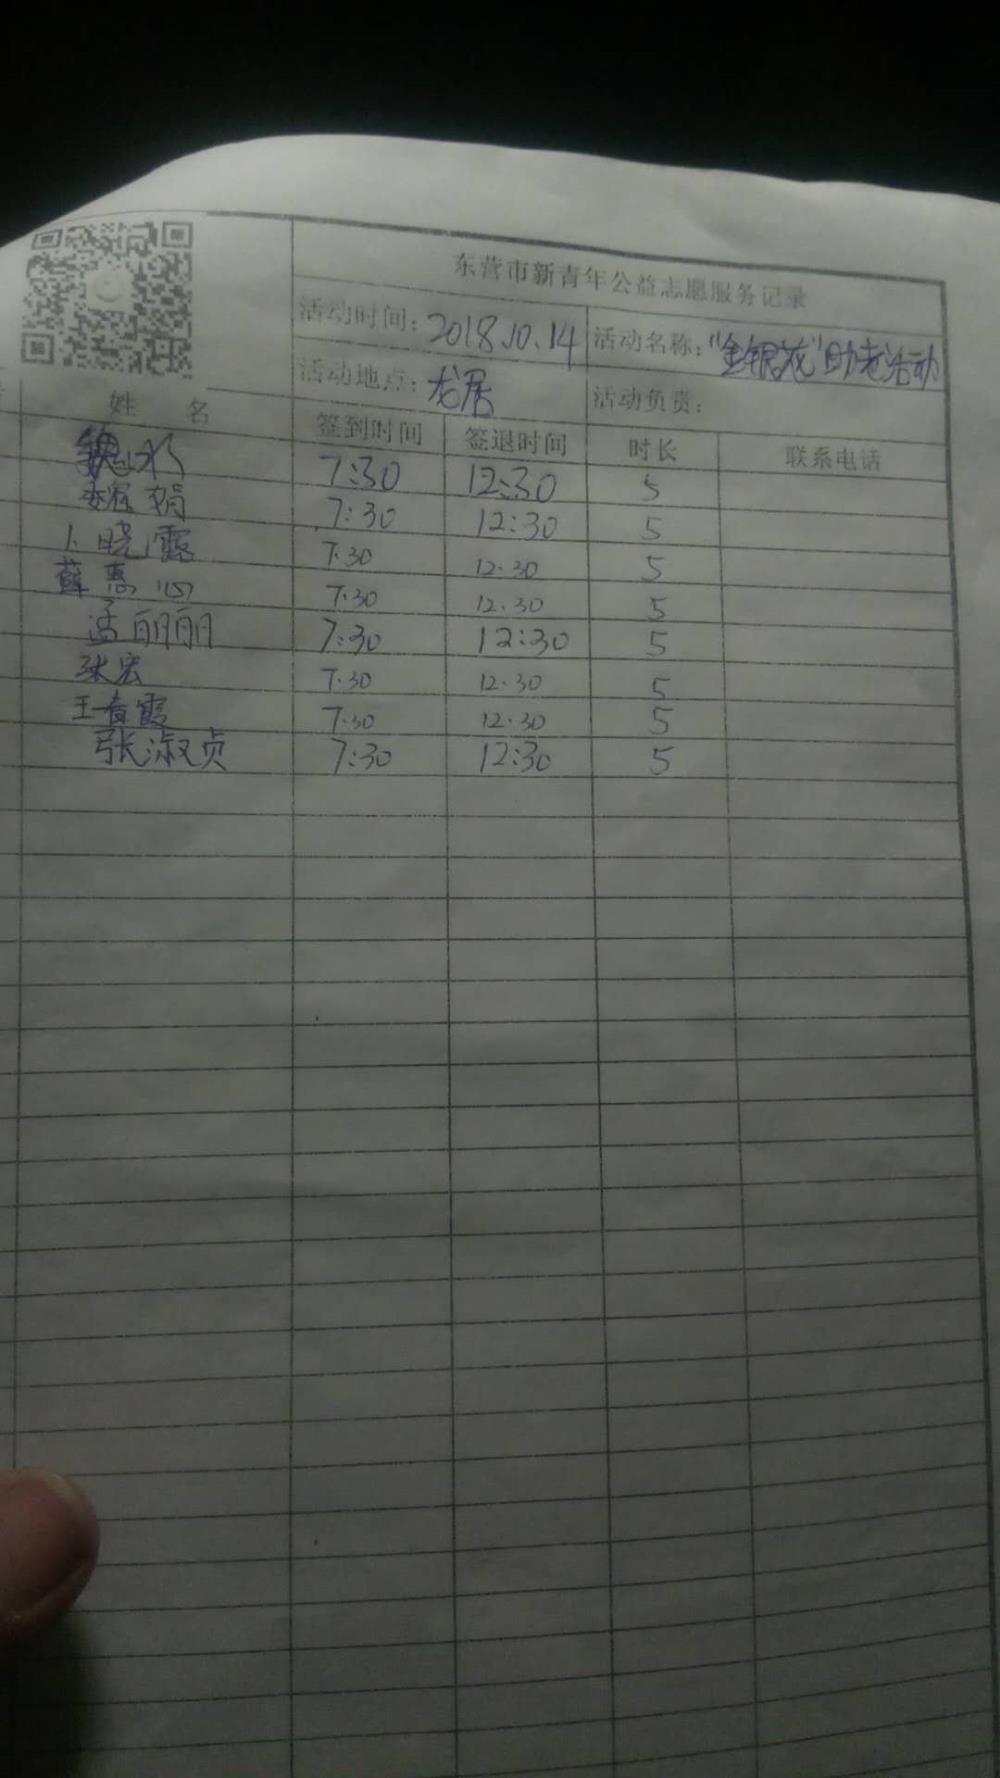 东营市新青年公益志愿服务记录
活动时间：2018.10.14 活动名称："金银花"助老活动
活动地点：龙居 活动负责：
姓 名 签到时间 签退时间 时长 联系电话
7:30 12:30 5
娟 7:30 12:30 5
卜晓露 7.30 12.30 5
薛惠心 7.30 12.30 5
孟丽丽 7:30 12:30 5
张宏 7.30 12.30 5
王春霞 7.30 12.30 5
张淑贞 7:30 12:30 5